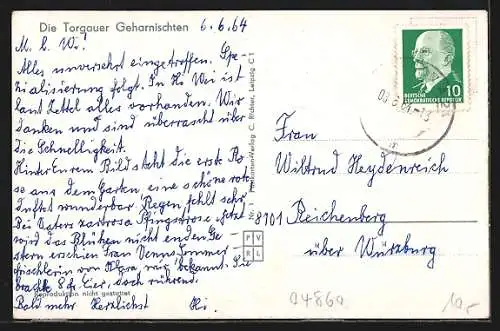 Die Torgauer Geharnischten
6.6.64
M. l. Wi!
Alles unversehrt eingetroffen. Spe-
zialisierung folgt. In Zi Wei ist
laut Zettel alles vorhanden. Wir
danken und sind überrascht über
die Schnelligkeit.
Hinter Eurem Bild steht die erste Ro-
se aus dem Garten, eine schöne rote
duftet wunderbar. Regen fehlt sehr.
Bei Vaters zartrosa Pfingstrose
wird das Blühen nicht enden. Ge-
stern erschien Frau
von bekannt. Sie
brachte 8 fr. Eier, doch rührend.
Bald mehr Herzlichst
Reproduktion nicht gestattet
Nr. 1
Verlag C. Richter, Leipzig C 1
P V
R L
DEUTSCHE
DEMOKRATISCHE REPUBLIK
10
Frau
Wiltrud Heydenreich
8701 Reichenberg
über Würzburg
04860
10,-